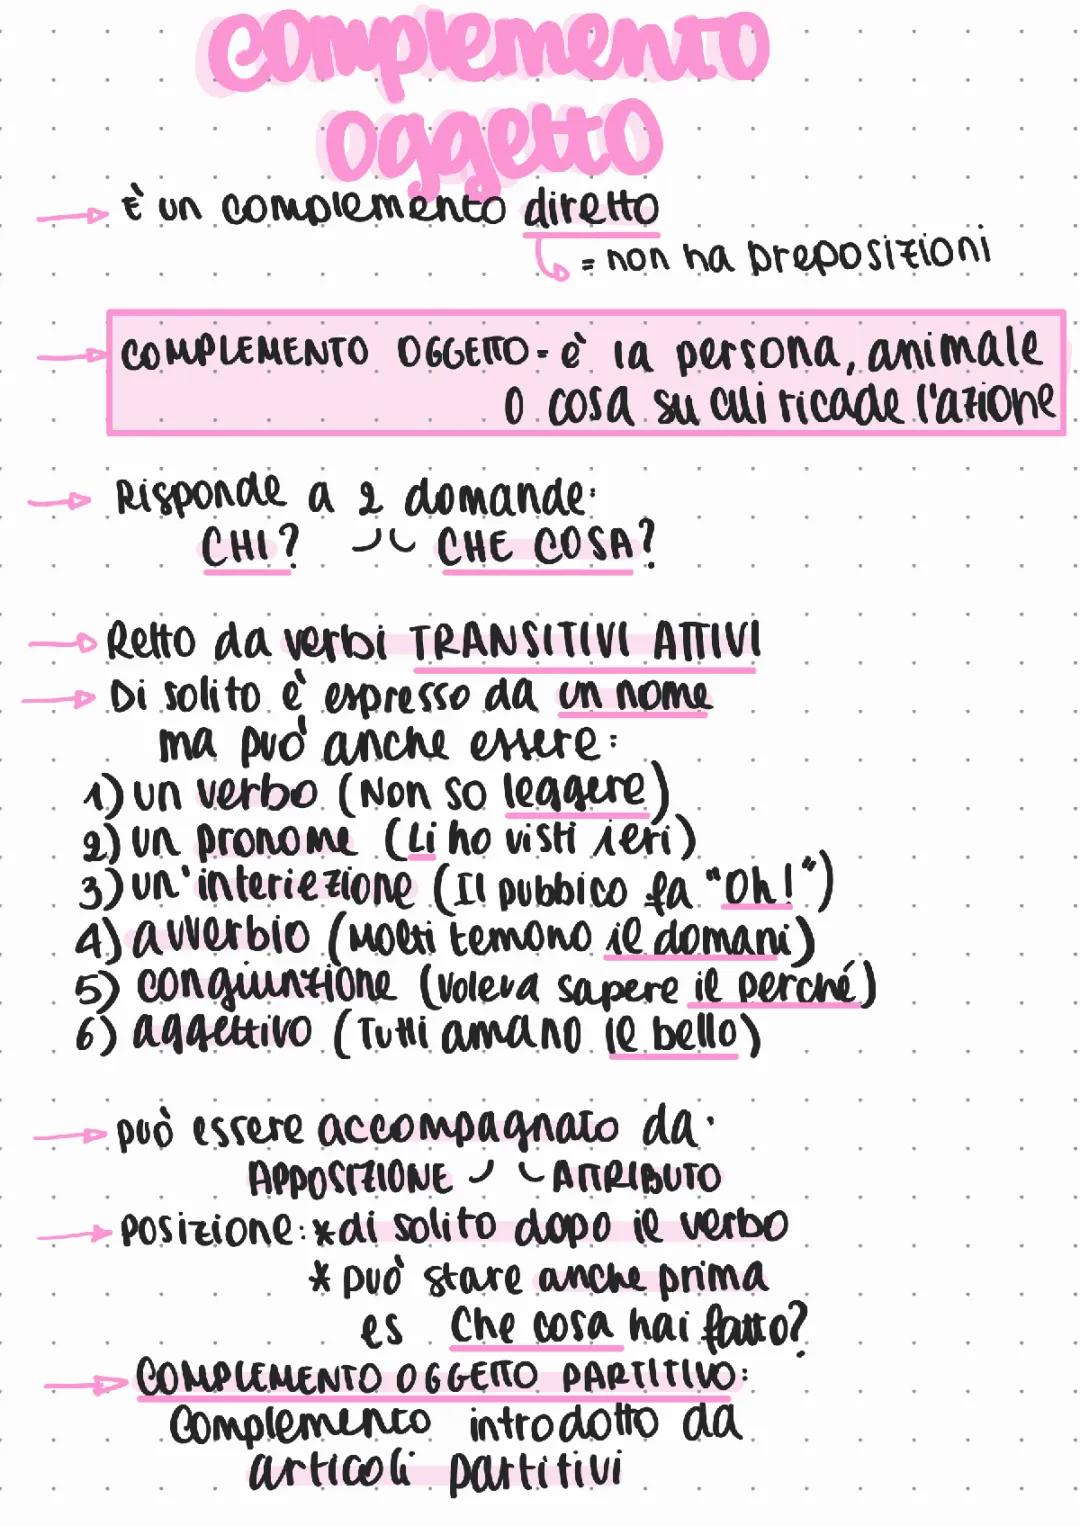 complemento
oggetto
È un complemento diretto
= non ha preposizioni
COMPLEMENTO OGGETTO = è la persona, animale
o cosa su cui ricade l'azione
Risponde a 2 domande:
CHI? CHE COSA?
Retto da verbi TRANSITIVI ATTIVI
Di solito è espresso da un nome
ma può anche essere:
1) un verbo (Non so leggere)
2) un pronome (Li ho visti ieri)
3) un'interiezione (Il pubbico fa "Oh!")
4) avverbio (Molti temono il domani)
5) congiunzione (Voleva sapere il perché)
6) aggettivo (Tutti amano il bello)
può essere accompagnato da:
APPOSIZIONE ATTRIBUTO
POSIZIONE: * di solito dopo il verbo
* può stare anche prima
es Che cosa hai fatto?
COMPLEMENTO OGGETTO PARTITIVO:
Complemento introdotto da
articoli partitivi